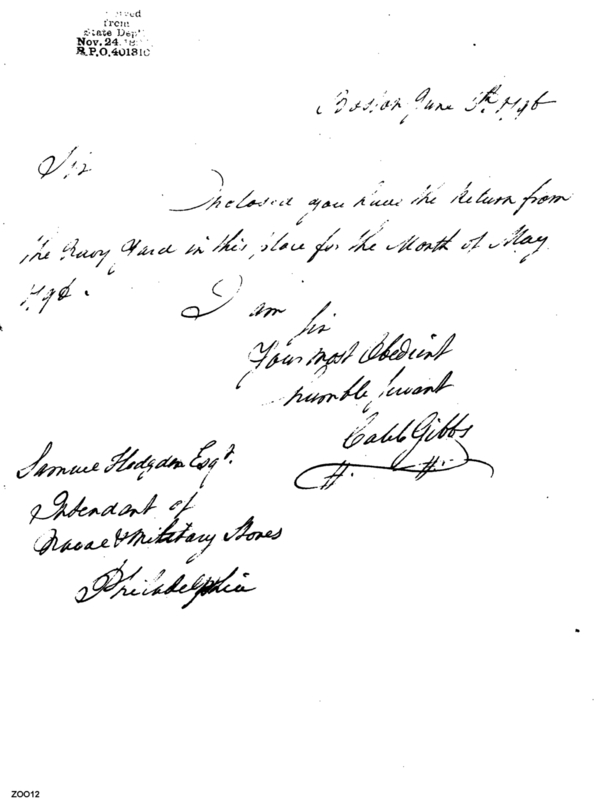 from
State Dep't
Nov. 24, 18
R.P.O. 401310
Boston June 5th 1796
Sir
Inclosed you have the Return from
the Navy Yard in this place for the Month of May
179
I am
Sir
Your most Obedient
humble Servant
Caleb Gibbs
Samuel Hodgdon Esqr.
Intendant of
Naval & Military Stores
Philadelphia
ZOO12